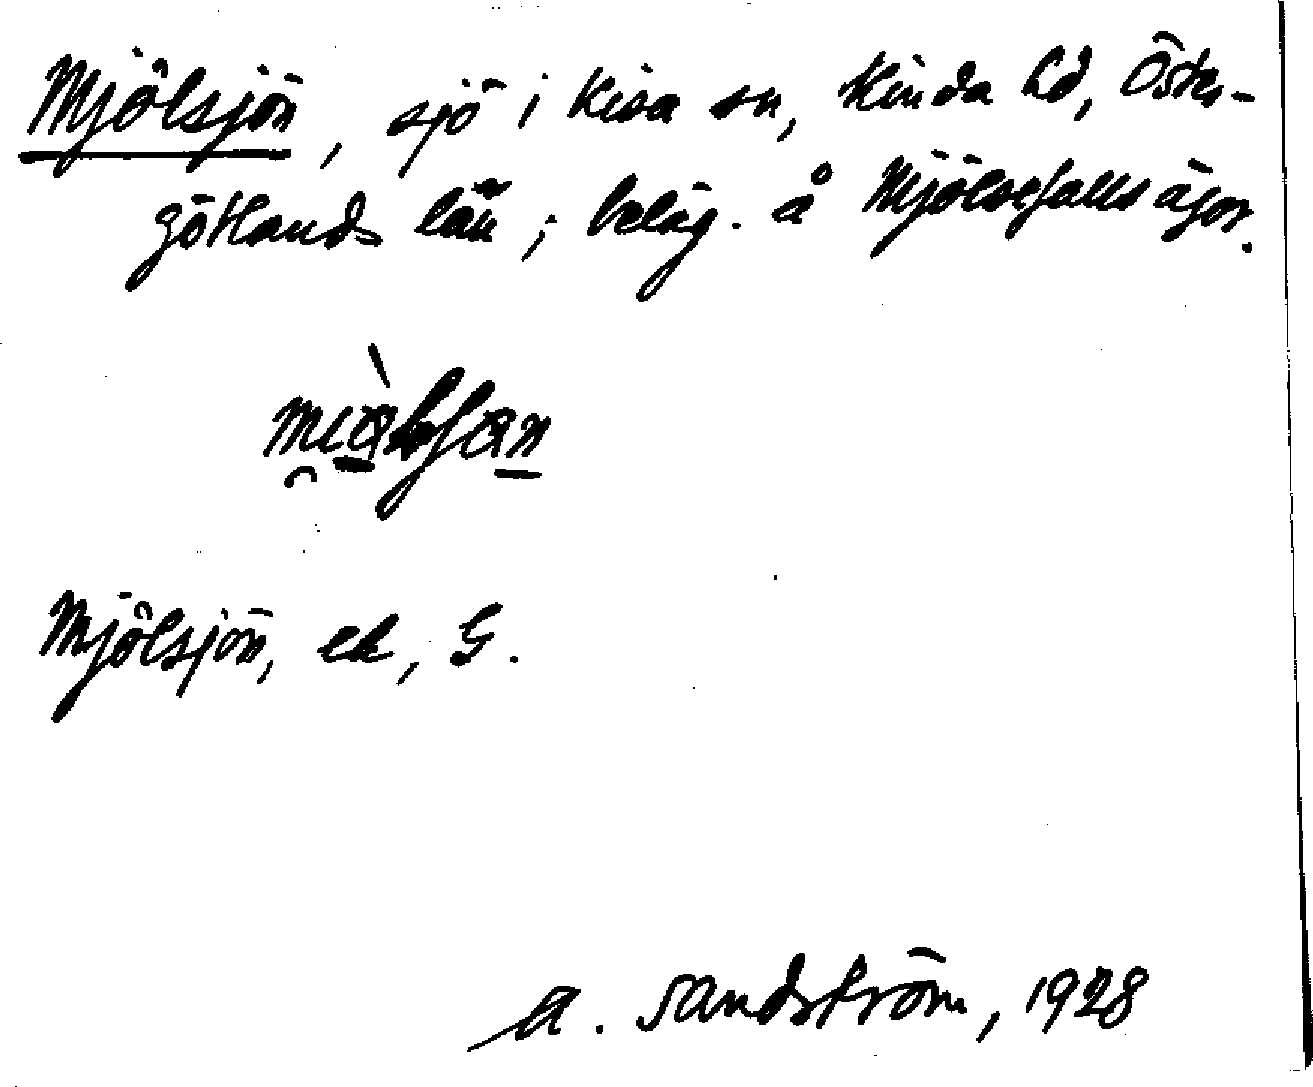 Mjölsjön, sjö i Kisa sn, Kinda hd, Öster-
götlands län; beläg. å Mjölsefalls ägor.
Mjölsjön, ek, G.
A. Sandström, 1928